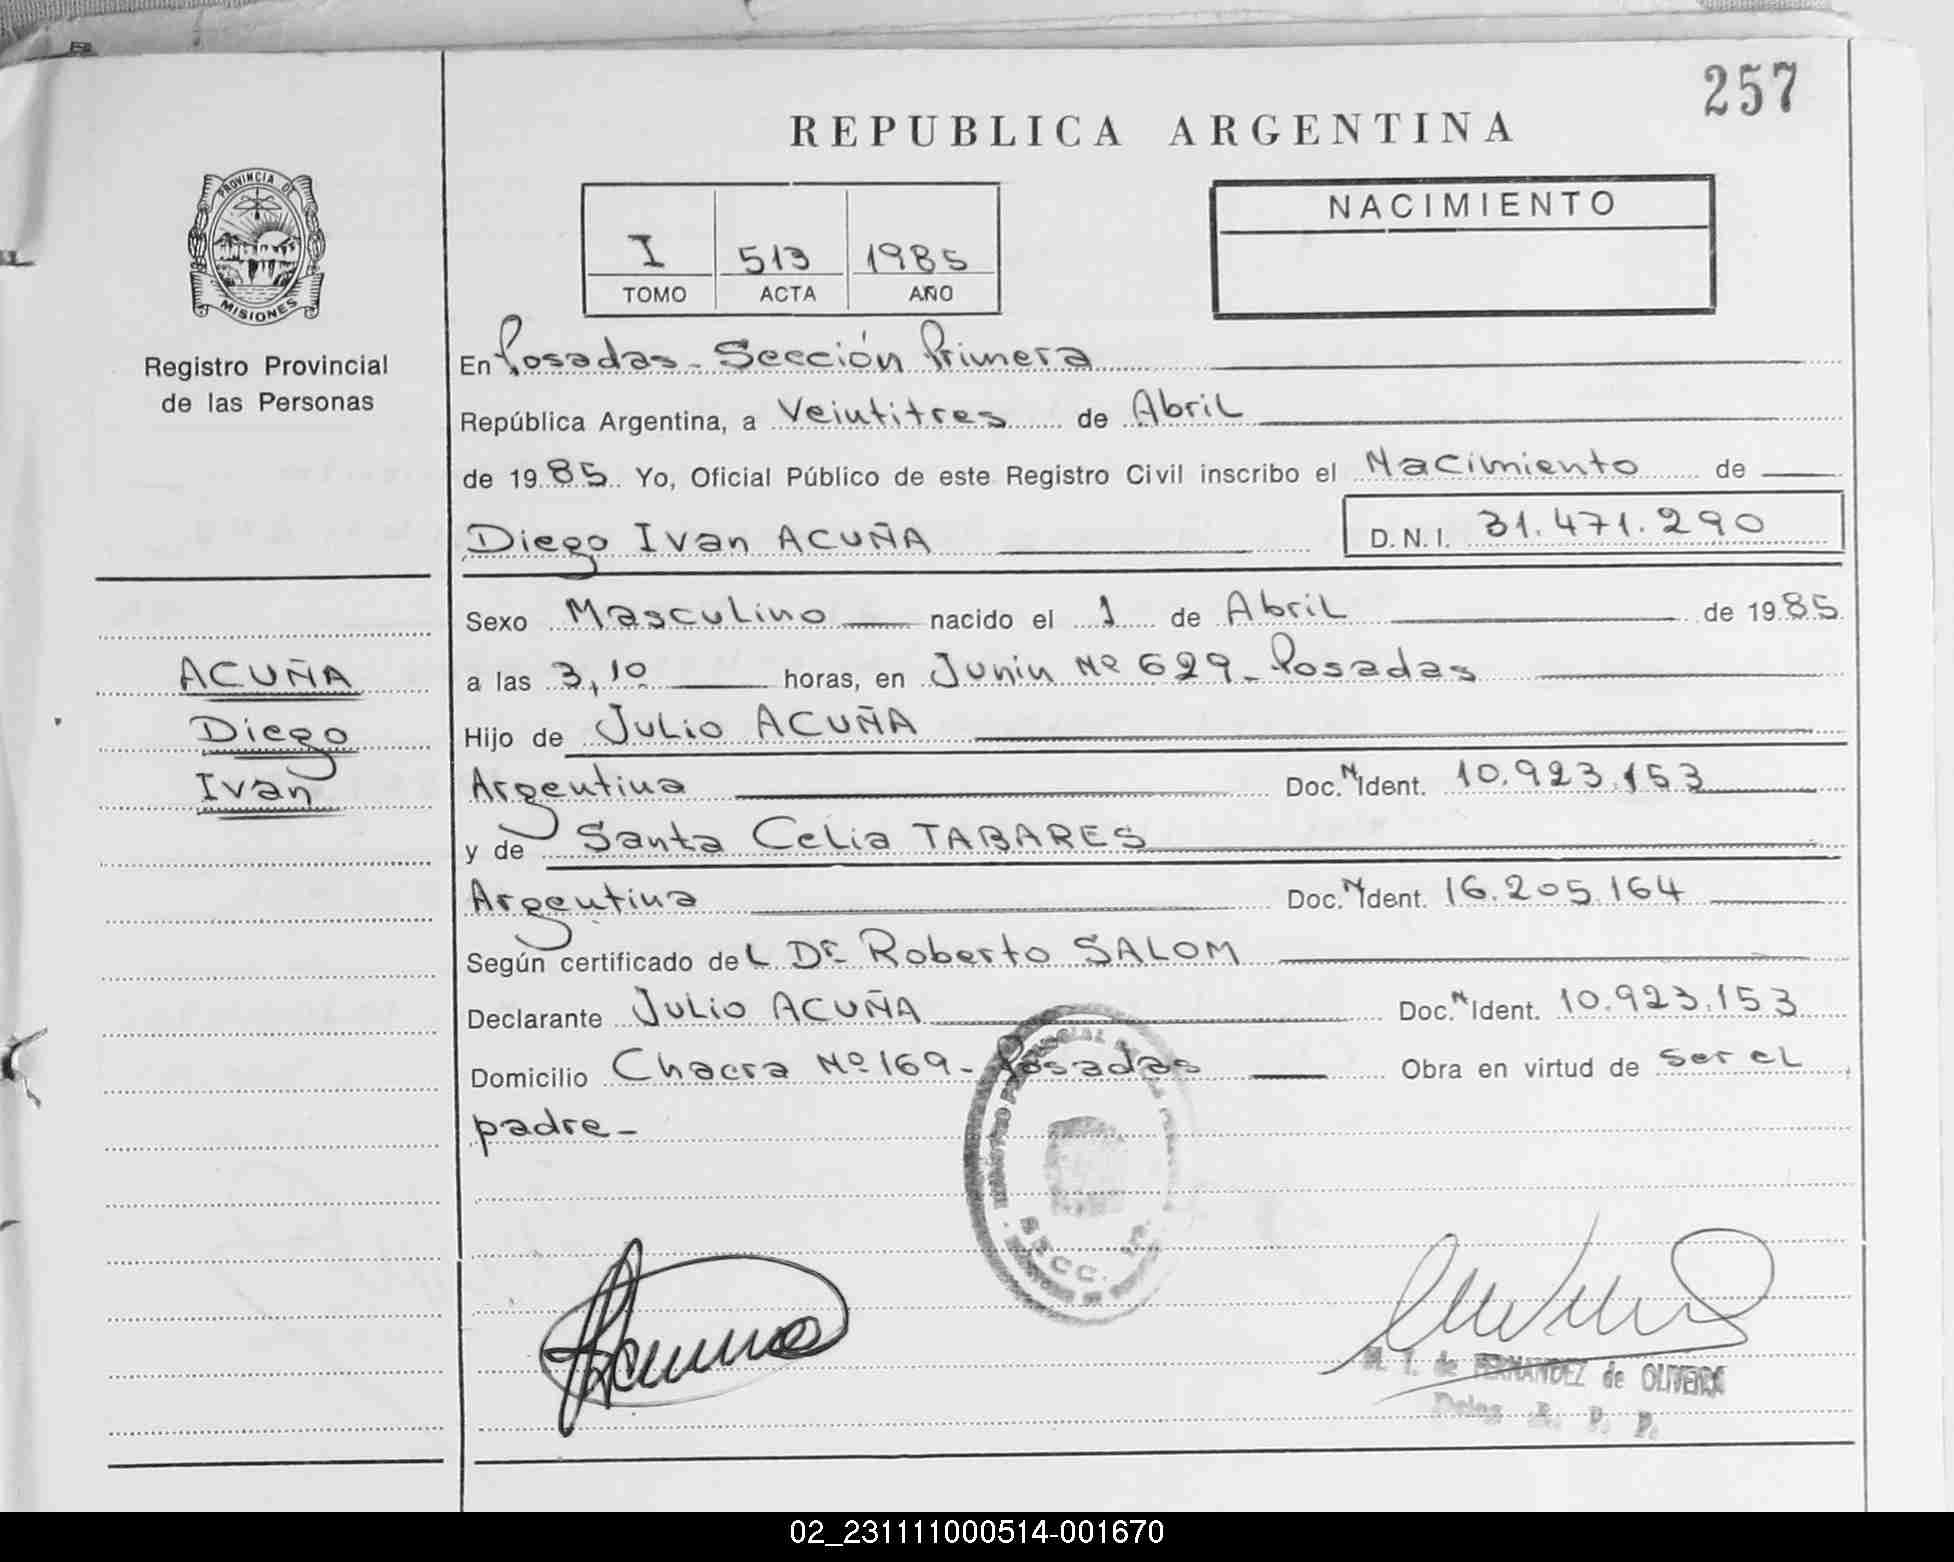 257
REPUBLICA ARGENTINA
PROVINCIA DE
MISIONES
Registro Provincial
de las Personas
I 513 1985
TOMO ACTA AÑO
NACIMIENTO
En Posadas - Sección Primera
República Argentina, a Veintitres de Abril
de 1985. Yo, Oficial Público de este Registro Civil inscribo el Nacimiento de
Diego Ivan ACUÑA D.N.I. 31.471.290
Sexo Masculino nacido el 1 de Abril de 1985
ACUÑA
Diego
Ivan
a las 3,10 horas, en Junin Nº 629 - Posadas
Hijo de Julio ACUÑA
Argentina Doc. N Ident. 10.923.153
y de Santa Celia TABARES
Argentina Doc. N Ident. 16.205.164
Según certificado del Dr. Roberto SALOM
Declarante Julio ACUÑA Doc. N Ident. 10.923.153
Domicilio Chacra Nº 169 - Posadas Obra en virtud de ser el
padre -
SECC. 1ra.
M. T. de FERNANDEZ de OLIVEIRA
Deleg. R. P. P.
02_231111000514-001670